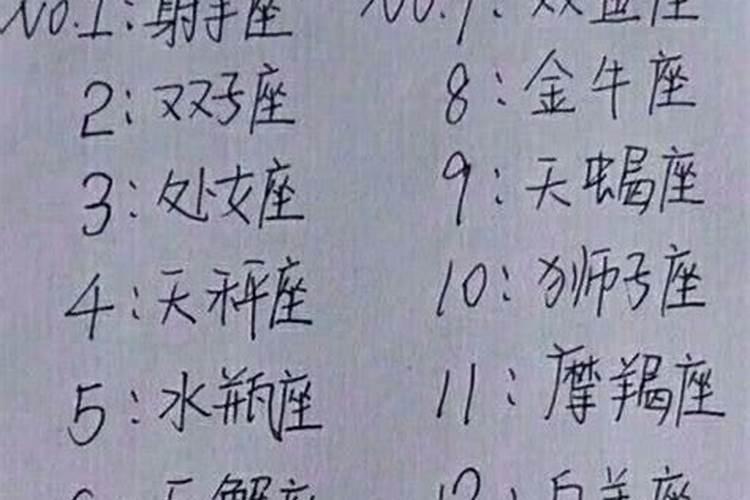 No.1:射手座
2:双子座
3:处女座
4:天秤座
5:水瓶座
No.7:双鱼座
8:金牛座
9:天蝎座
10:狮子座
11:摩羯座
12:白羊座